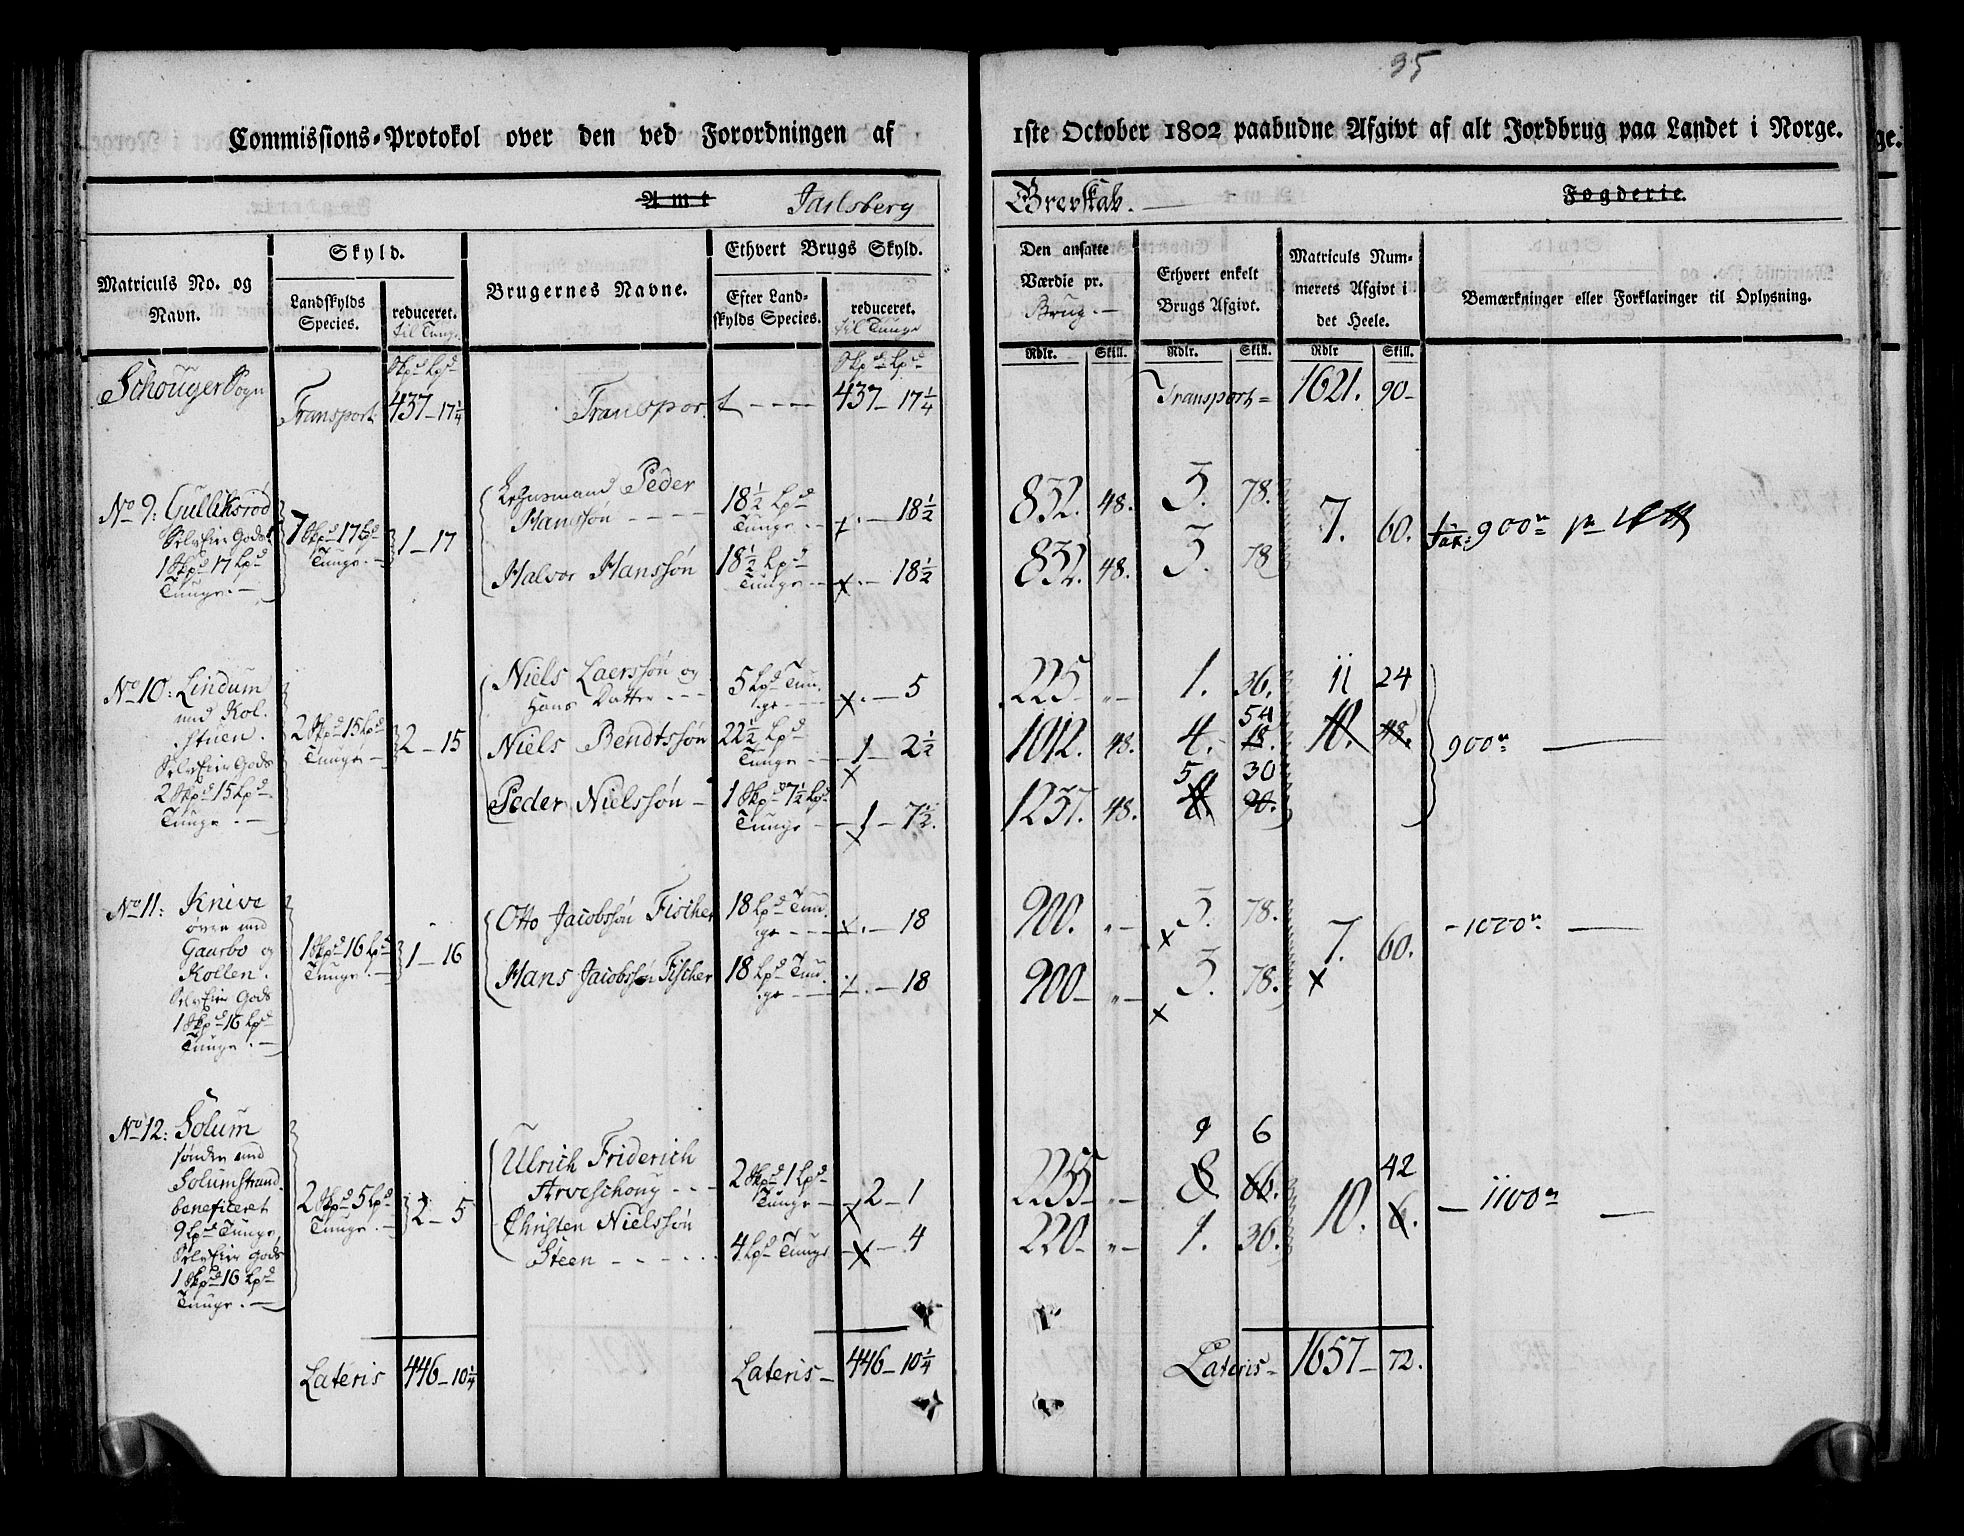 35
Commissions-Protokol over den ved Forordningen af
1ste October 1802 paabudne Afgivt af alt Jordbrug paa Landet i Norge.
Amt Jarlsberg
Grevskab. Fogderie.
Matriculs No. og Navn.
Skyld.
Landskylds Species.
reduceret. til Tunge
Brugernes Navne.
Ethvert Brugs Skyld.
Efter Landskylds Species.
reduceret. til Tunge
Den ansatte Værdie pr. Brug.
Ethvert enkelt Brugs Afgivt.
Matriculs Nummerets Afgivt i det Heele.
Bemærkninger eller Forklaringer til Oplysning.
Rdlr. Skill. Rdlr. Skill. Rdlr Skill.
Skpd Lpd Skpd Lpd
Schouger Sogn
Transport 437-17 1/4 Transport ---- 437-17 1/4 Transport= 1621. 90-
No 9: Gulliksrød
SelvEier Gods
1 Skpd 17 Lpd
Tunge.
1 Skpd 17 Lpd
Tunge.
1-17
Peder
Hanssøn
18 1/2 Lpd
Tunge
18 1/2
832. 48. 3. 78.
7. 60.
900
Halvor Hanssøn
18 1/2 Lpd
Tunge
18 1/2
832. 48. 3. 78
No 10: Lindum
med Kol-
stuen.
SelvEier Gods
2 Skpd 15 Lpd
Tunge.
2 Skpd 15 Lpd
Tunge
2-15
Niels Laerssøn og
Hans Datter
5 Lpd Tun-
ge
5
225 „ 1. 36.
11 24
Niels Bendtssøn
22 1/2 Lpd
Tunge
1-2 1/2
1012. 48. 4. 54
18.
10. 48.
900
Peder Nielssøn
1 Skpd 7 1/2 Lpd
Tunge
1-7 1/2
1237. 48. 5 30
90.
No 11: Knive
øvre med
Gaasbo og
Kollen.
SelvEier Gods
1 Skpd 16 Lpd
Tunge.
1 Skpd 16 Lpd
Tunge
1-16
Otto Jacobssøn Fischer
18 Lpd Tun-
ge
18
900. „ 3. 78.
7. 60.
Hans Jacobssøn Fischer
18 Lpd Tun-
ge
18
900 „ 3. 78.
No 12: Solum
søndre med
Solumstrand
beneficeret
9 Lpd Tunge,
SelvEier Gods
1 Skpd 16 Lpd
Tunge.
2 Skpd 5 Lpd
Tunge
2-5
Ulrich Friderich
Arveschoug
2 Skpd 1 Lpd
Tunge
2-1
2255 „ 9 6
8. 66.
42
10. 6.
1100
Christen Nielssøn
Steen
4 Lpd Tunge
4
220 „ 1. 36.
Lateris 446-10 1/4 Lateris 446-10 1/4 Lateris 1657-72.